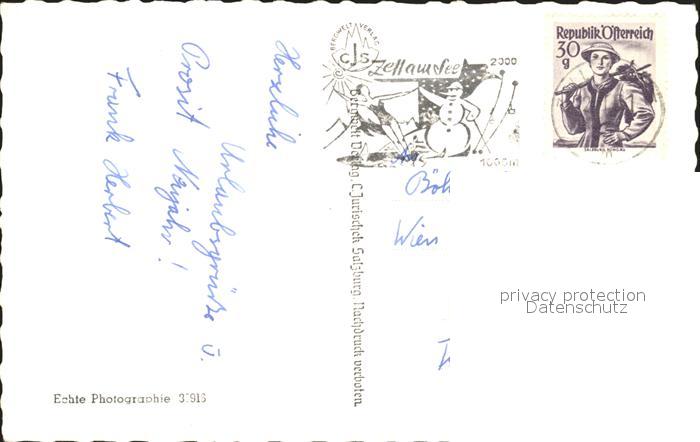 Herzliche
Urlaubsgrüße u.
Prosit Neujahr!
Frank Herbert
Echte Photographie
Bergwelt Verlag, C. Jurischek Salzburg. Nachdruck verboten.
BERGWELT VERLAG
CJS
Zell am See
2000
1000m
Republik Österreich
30
g
Wien
privacy protection
Datenschutz